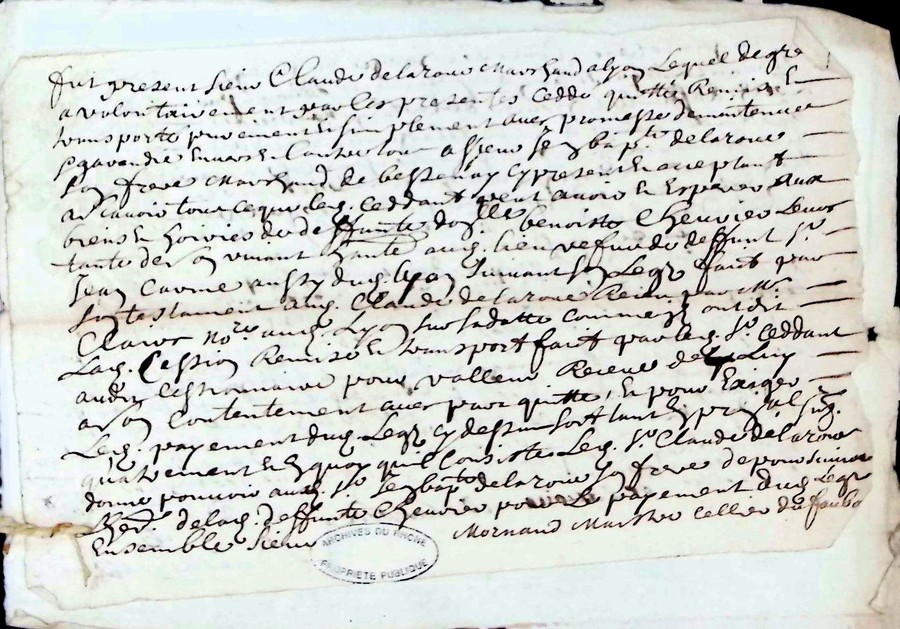 fut present Sieur Claude delaroue Marchand a lyon Lequel de gre
a volontairement par les presentes Ceddé quitté Remis Et
transporté purement Et simplement avec promesse de maintenue
Et garendie Envers Et Contre tous a Sieur Jean bapt.e delaroue
Son frere Marchand de bessenay Cy present Et acceptant
a Scavoir tout ce que led. Ceddant peut avoir Et Esperer aux
biens Et hoiries de deffunte d.oiselle benoiste Chevrier Leur
tante de son vivant aud. lieu vefve de deffunt S.r
Jean Carme aud. Lyon Suivant Son Legz faict par
Son testament aud. Claude delaroue Receu par M.e
Clairet No.re aud. Lyon Sur Sa datte comme Ils ont dit
Lad. Cession Remise Et transport fait par led. S.r Ceddant
aud. Cessionnaire pour valleur Receue de luy
a Son Contentement avec pour quitte, Et pour Exiger
Led. payement dud. Legz Cy dessus soit tant En principal
qu'autrement Et En quoy qu'il Consiste Led. S.r Claude delaroue
donne pouvoir aud. S.r Jean bapt.e delaroue Son frere de poursuivre
delad. deffunte Chevrier pour le payement dud. Legz
Ensemble Sieur Mornand Maistre Cellier du faubo
ARCHIVES DU RHONE
PROPRIETE PUBLIQUE